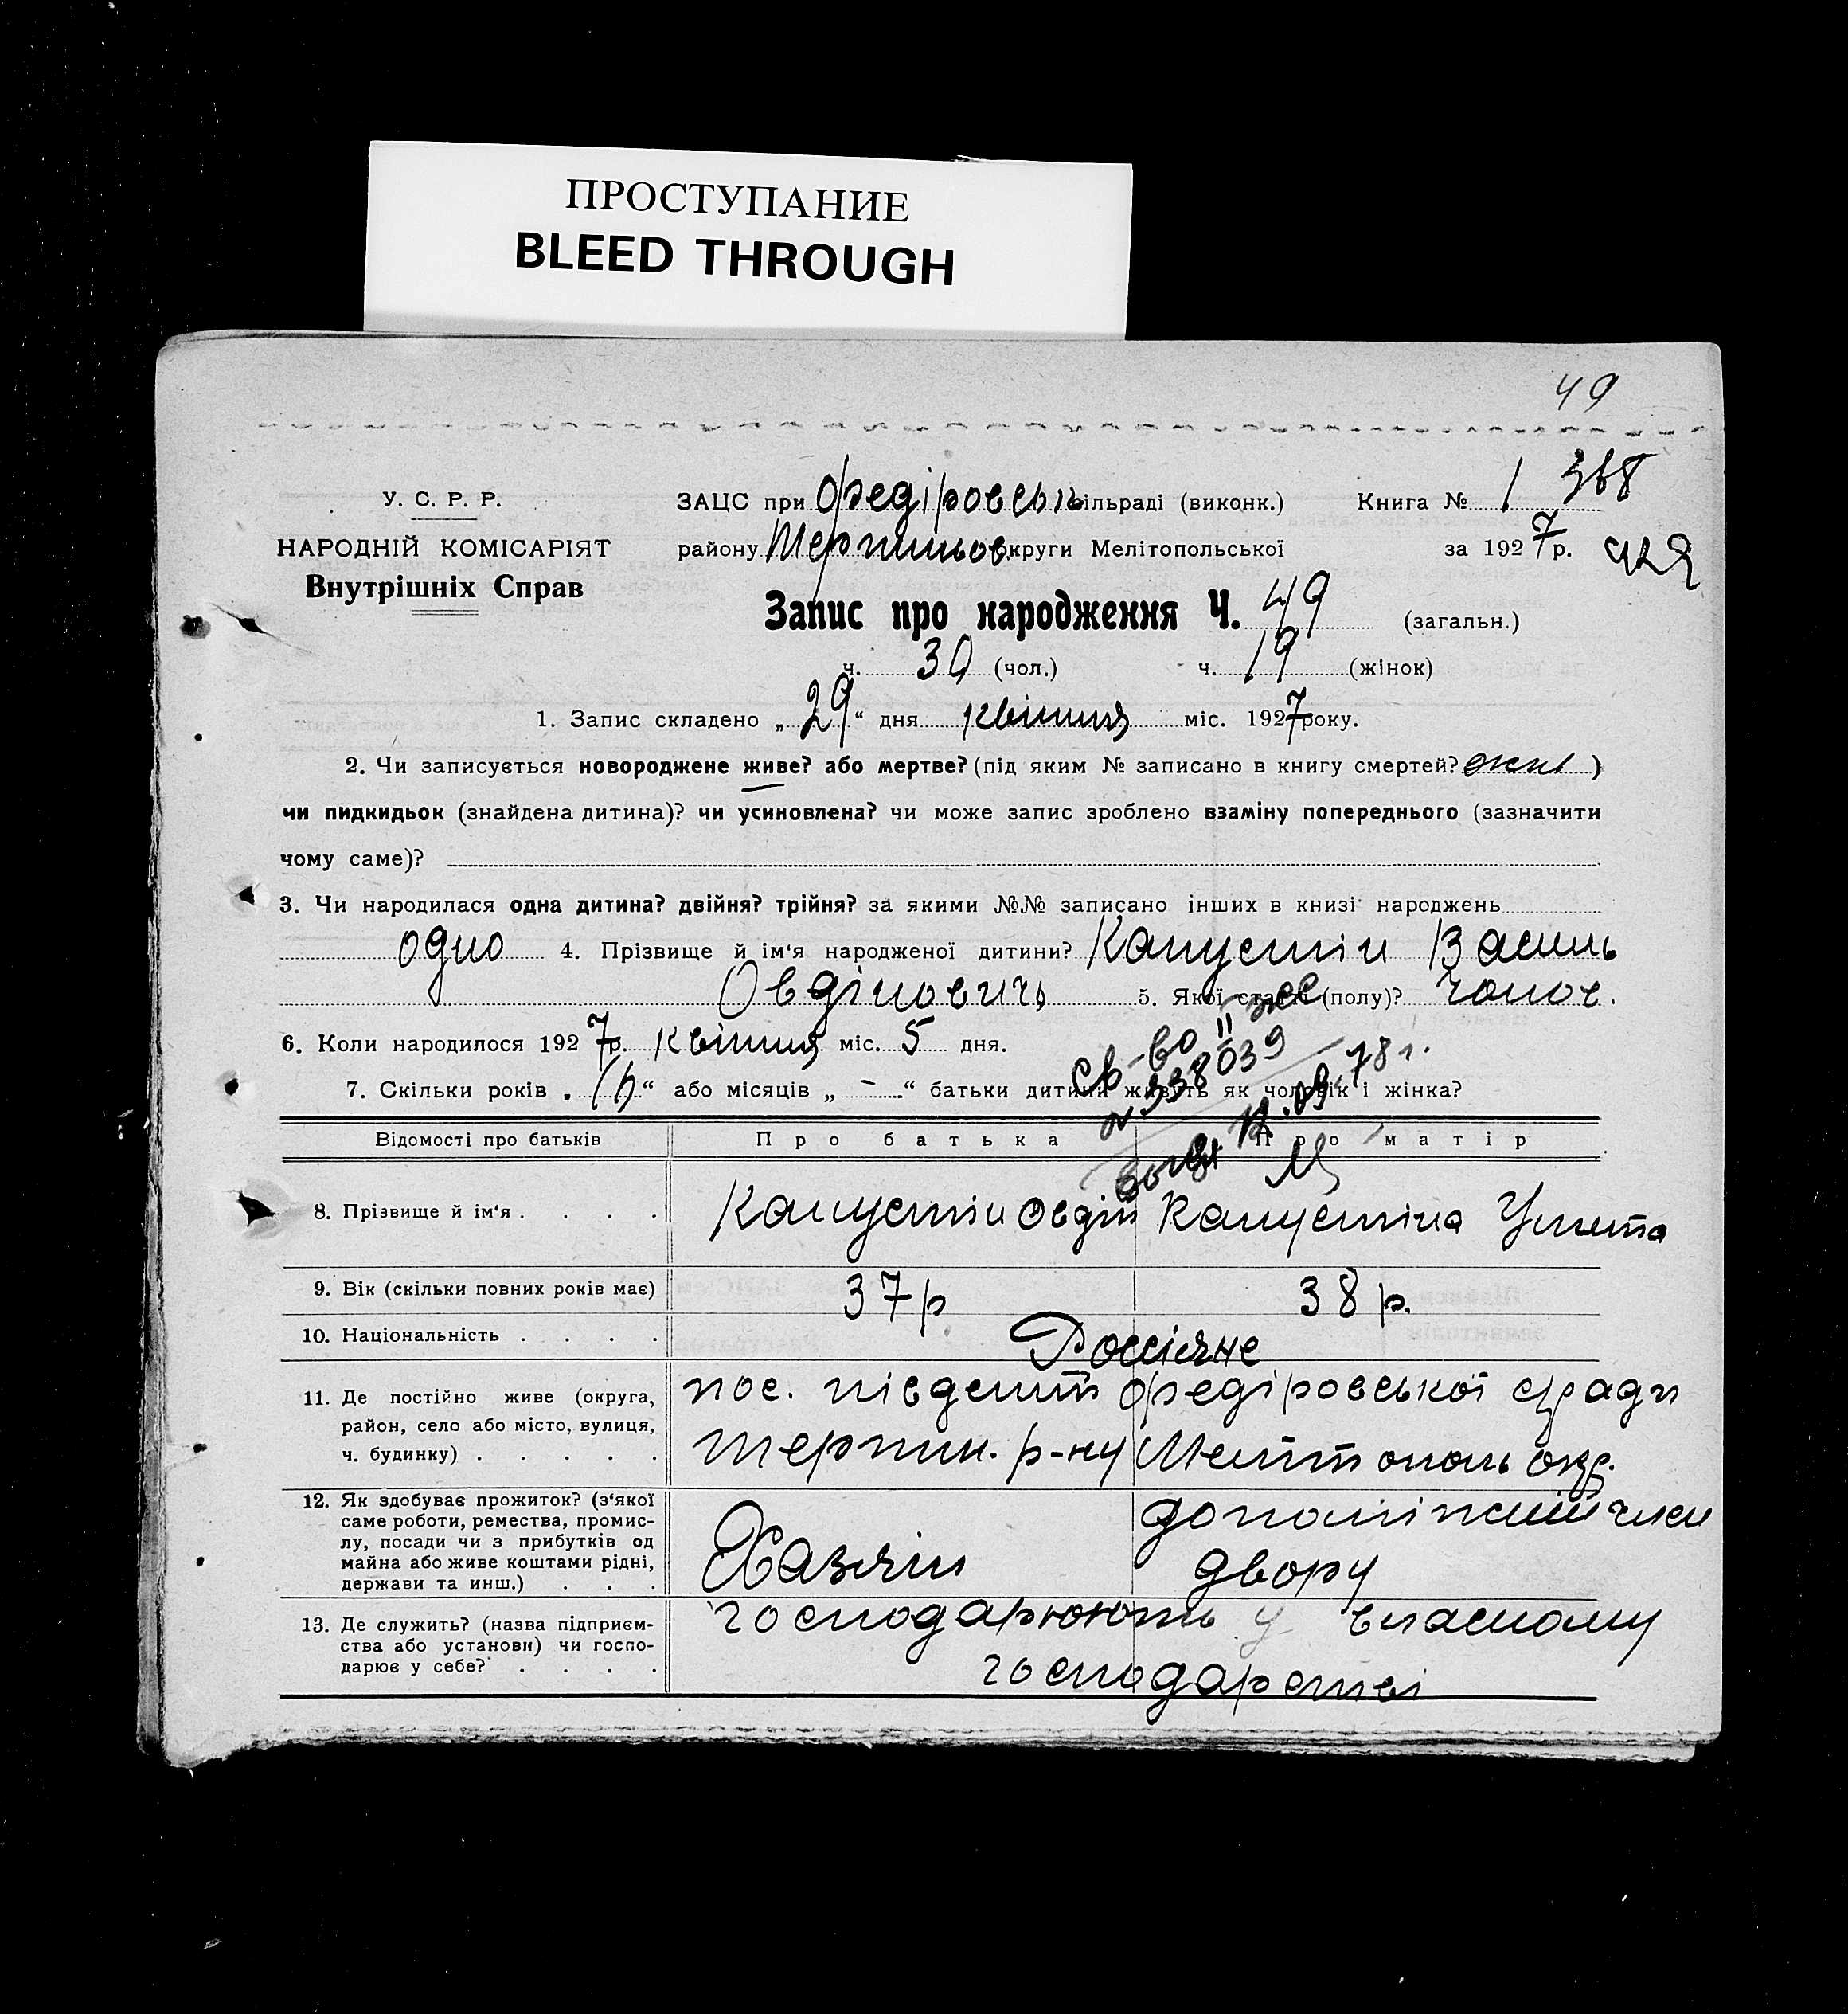 ПРОСТУПАНИЕ
BLEED THROUGH
49
У. С. Р. Р.
НАРОДНІЙ КОМІСАРІЯТ
Внутрішніх Справ
ЗАЦС при Федіровськ сільраді (виконк.) Книга № 1 368
району Терпиньов. округи Мелітопольської за 1927 р.
Запис про народження Ч. 49 (загальн.)
ч. 30 (чол.) ч. 19 (жінок)
1. Запис складено „29“ дня квітня міс. 1927 року.
2. Чи записується новороджене живе? або мертве? (під яким № записано в книгу смертей? )
чи пидкидьок (знайдена дитина)? чи усиновлена? чи може запис зроблено взаміну попереднього (зазначити
чому саме)?
3. Чи народилася одна дитина? двійня? трійня? за якими №№ записано інших в книзі народжень
одно 4. Прізвище й ім‘я народженої дитини? Капустін Василь
Овдіновичь 5. Якої статі (полу)? чолов.
6. Коли народилося 1927 р. квітня міс. 5 дня.
7. Скільки років „ “ або місяців „ – “ батьки дитини живуть як чоловік і жінка?
св-во II жс
№ 338039
выд. 12.09.78 г.
Відомості про батьків Про батька Про матір
8. Прізвище й ім‘я . . . . Капустін Овдін Капустіна Улита
9. Вік (скільки повних років має) 37 р 38 р.
10. Національність . . . . Россіяне
11. Де постійно живе (округа, район, село або місто, вулиця, ч. будинку) . . . . .
пос. південит Федіровської с/ради
терпин. р-ну Мелітополь окр.
12. Як здобуває прожиток? (з‘якої саме роботи, ремества, промислу, посади чи з прибутків од майна або живе коштами рідні, держави та инш.) . . .
Хазяін
двору
13. Де служить? (назва підприємства або установи) чи господарює у себе? . . . .
господарюють у власному
господарстві